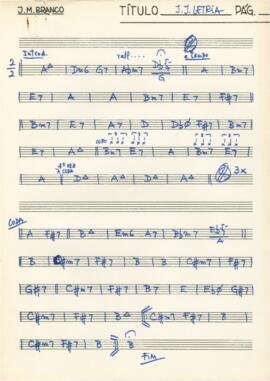 J.M. BRANCO TÍTULO J.J. LETRIA PÁG.
Introd. rall.... a tempo
2/2 A△ | Dm6 G7 | A♭m7 | G || A | Bm7 |
E7 | A | A | Bm7 | E7 | A |
Bm7 | E7 | Bm7 | A7 | D | D♭ø F#7 | Bm7 |
E7 | A || Bm7 | E7 | A | Bm7 E7 |
A | D△ | A | D△ 3x
CODA
A F#7 || B△ | Em6 A7 | D♭m7 | A |
B | C#m7 | F#7 | B | B | C#m7 | F#7 |
G#7 | C#m7 | F#7 | B7 | E | E♭ø G#7 |
C#m7 F#7 | B△ | C#m7 | F#7 | B | C#m7 |
C#m7 F#7 | B | B
FIM